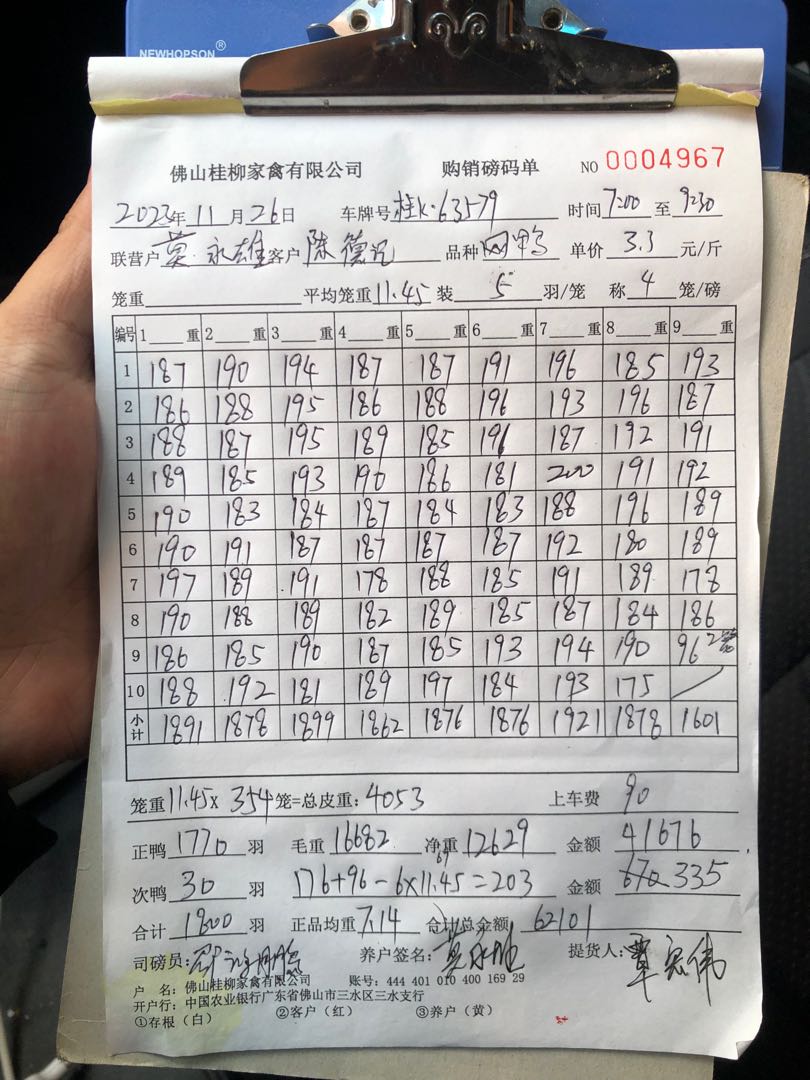 NEWHOPSON®
佛山桂柳家禽有限公司 购销磅码单 NO 0004967
2023年 11月 26日 车牌号 桂K·63579 时间 7:00 至 9:30
联营户 莫永雄 客户 陈德 品种 鸭 单价 3.3 元/斤
笼重 平均笼重 11.45 装 5 羽/笼 称 4 笼/磅
编号 1 重 2 重 3 重 4 重 5 重 6 重 7 重 8 重 9 重
1 187 190 194 187 187 191 196 185 193
2 186 188 195 186 188 196 193 196 187
3 188 187 195 189 185 196 187 192 191
4 189 185 193 190 186 181 200 191 192
5 190 183 184 187 184 183 188 196 189
6 190 191 187 187 187 187 192 180 189
7 197 189 191 178 188 185 191 189 178
8 190 188 189 182 189 185 187 184 186
9 186 185 190 187 185 193 194 190 96 2笼
10 188 192 181 189 197 184 193 175
小计 1891 1878 1899 1862 1876 1876 1921 1878 1601
笼重 11.45× 354 笼=总皮重: 4053 上车费 90
正鸭 1770 羽 毛重 16682 净重 12629 金额 41676
次鸭 30 羽 176+96-6×11.45=203 金额 335
合计 1800 羽 正品均重 7.14 合计总金额 62101
司磅员: 养户签名: 莫永雄 提货人: 覃宏伟
户 名: 佛山桂柳家禽有限公司 账号: 444 401 010 400 169 29
开户行: 中国农业银行广东省佛山市三水区三水支行
①存根(白) ②客户(红) ③养户(黄)